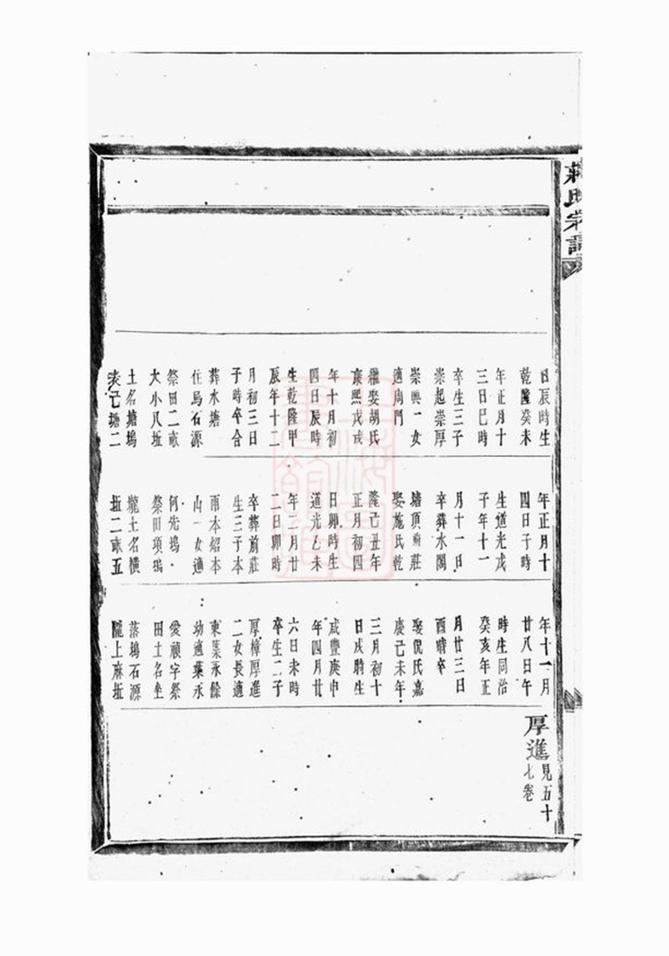 蔣氏宗譜
日辰時生
乾隆癸未
年正月十
三日巳時
卒生三子
崇起崇厚
崇興一女
適周門
繼娶胡氏
康熙戊戌
年十月初
四日辰時
生乾隆甲
辰年十二
月初三日
子時卒合
葬水塘
住烏石源
祭田二畝
大小八坵
土名塘塢
裘己塘二
年正月十
四日子時
生道光戊
子年十一
月十一日
卒葬水閣
塘頂前莊
娶施氏乾
隆己丑年
正月初四
日卯時生
道光乙未
年三月廿
二日卯時
卒葬前莊
生三子本
南本紹本
山一女適
何先塢
祭田項塢
壠土名橫
坵二畝五
年十一月
廿八日午
時生同治
癸亥年正
月廿三日
酉時卒
娶倪氏嘉
慶己未年
三月初十
日戌時生
咸豐庚申
年四月廿
六日未時
卒生二子
厚樟厚進
二女長適
東葉永餘
幼適葉永
愛禎字祭
田土名坐
落塢石源
隴上麻坵
厚進見五十
七卷